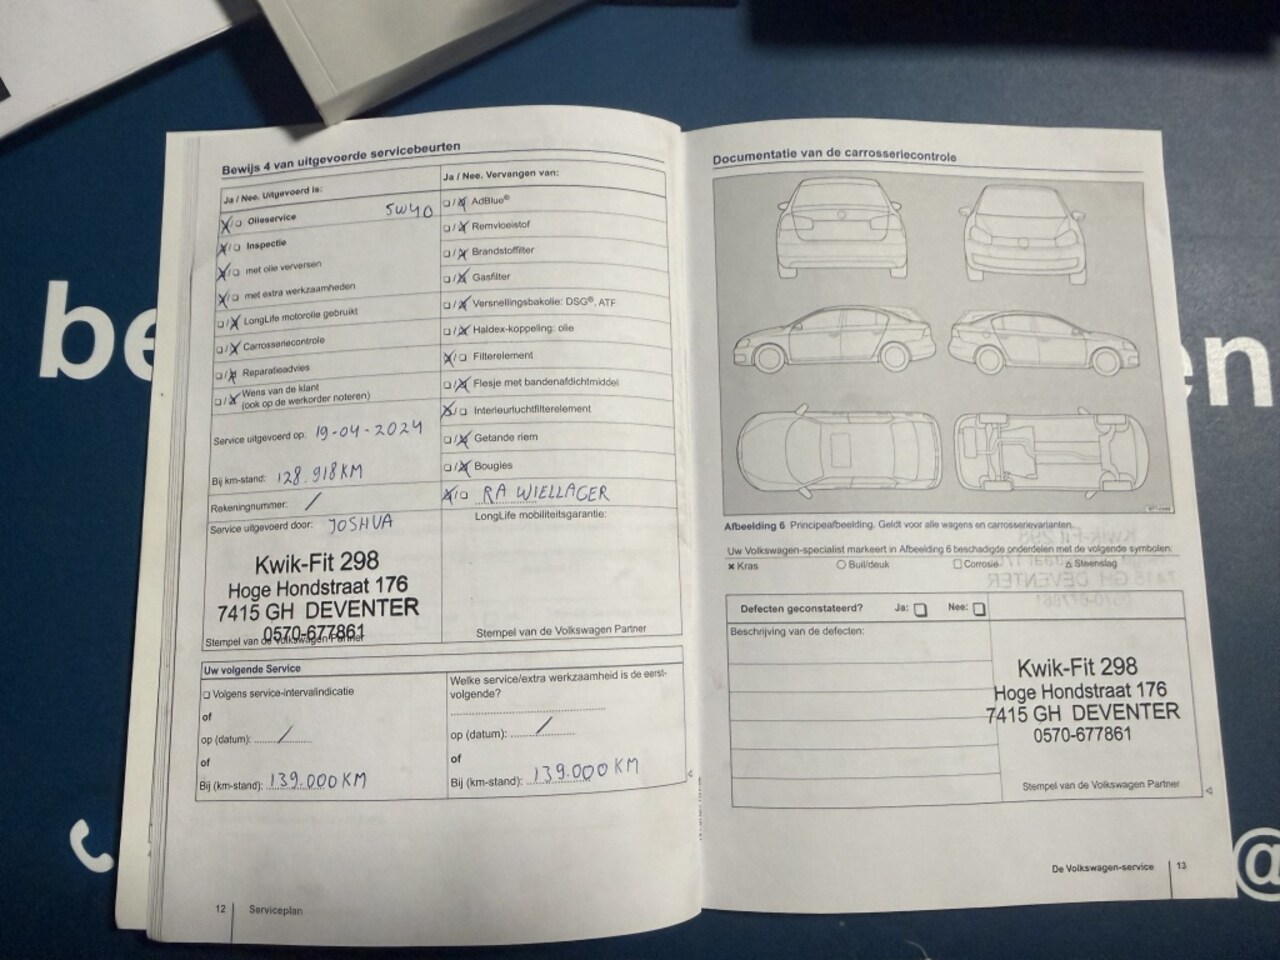 be
en
@
Bewijs 4 van uitgevoerde servicebeurten
Ja / Nee. Uitgevoerd is:
Olieservice 5W40
Inspectie
met olie verversen
met extra werkzaamheden
LongLife motorolie gebruikt
Carrosseriecontrole
Reparatieadvies
Wens van de klant
(ook op de werkorder noteren)
Service uitgevoerd op: 19-04-2024
Bij km-stand: 128.918 KM
Rekeningnummer: /
Service uitgevoerd door: JOSHUA
Kwik-Fit 298
Hoge Hondstraat 176
7415 GH DEVENTER
0570-677861
Stempel van de Volkswagen Partner
Ja / Nee. Vervangen van:
AdBlue®
Remvloeistof
Brandstoffilter
Gasfilter
Versnellingsbakolie: DSG®, ATF
Haldex-koppeling: olie
Filterelement
Flesje met bandenafdichtmiddel
Interieurluchtfilterelement
Getande riem
Bougies
RA WIELLAGER
LongLife mobiliteitsgarantie:
Stempel van de Volkswagen Partner
Uw volgende Service
Volgens service-intervalindicatie
of
op (datum): /
of
Bij (km-stand): 139.000 KM
Welke service/extra werkzaamheid is de eerst-
volgende?
op (datum): /
of
Bij (km-stand): 139.000 KM
12 Serviceplan
Documentatie van de carrosseriecontrole
Afbeelding 6 Principeafbeelding. Geldt voor alle wagens en carrosserievarianten.
Uw Volkswagen-specialist markeert in Afbeelding 6 beschadigde onderdelen met de volgende symbolen:
Kras Buil/deuk Corrosie Steenslag
Defecten geconstateerd? Ja: Nee:
Beschrijving van de defecten:
Kwik-Fit 298
Hoge Hondstraat 176
7415 GH DEVENTER
0570-677861
Stempel van de Volkswagen Partner
De Volkswagen-service 13